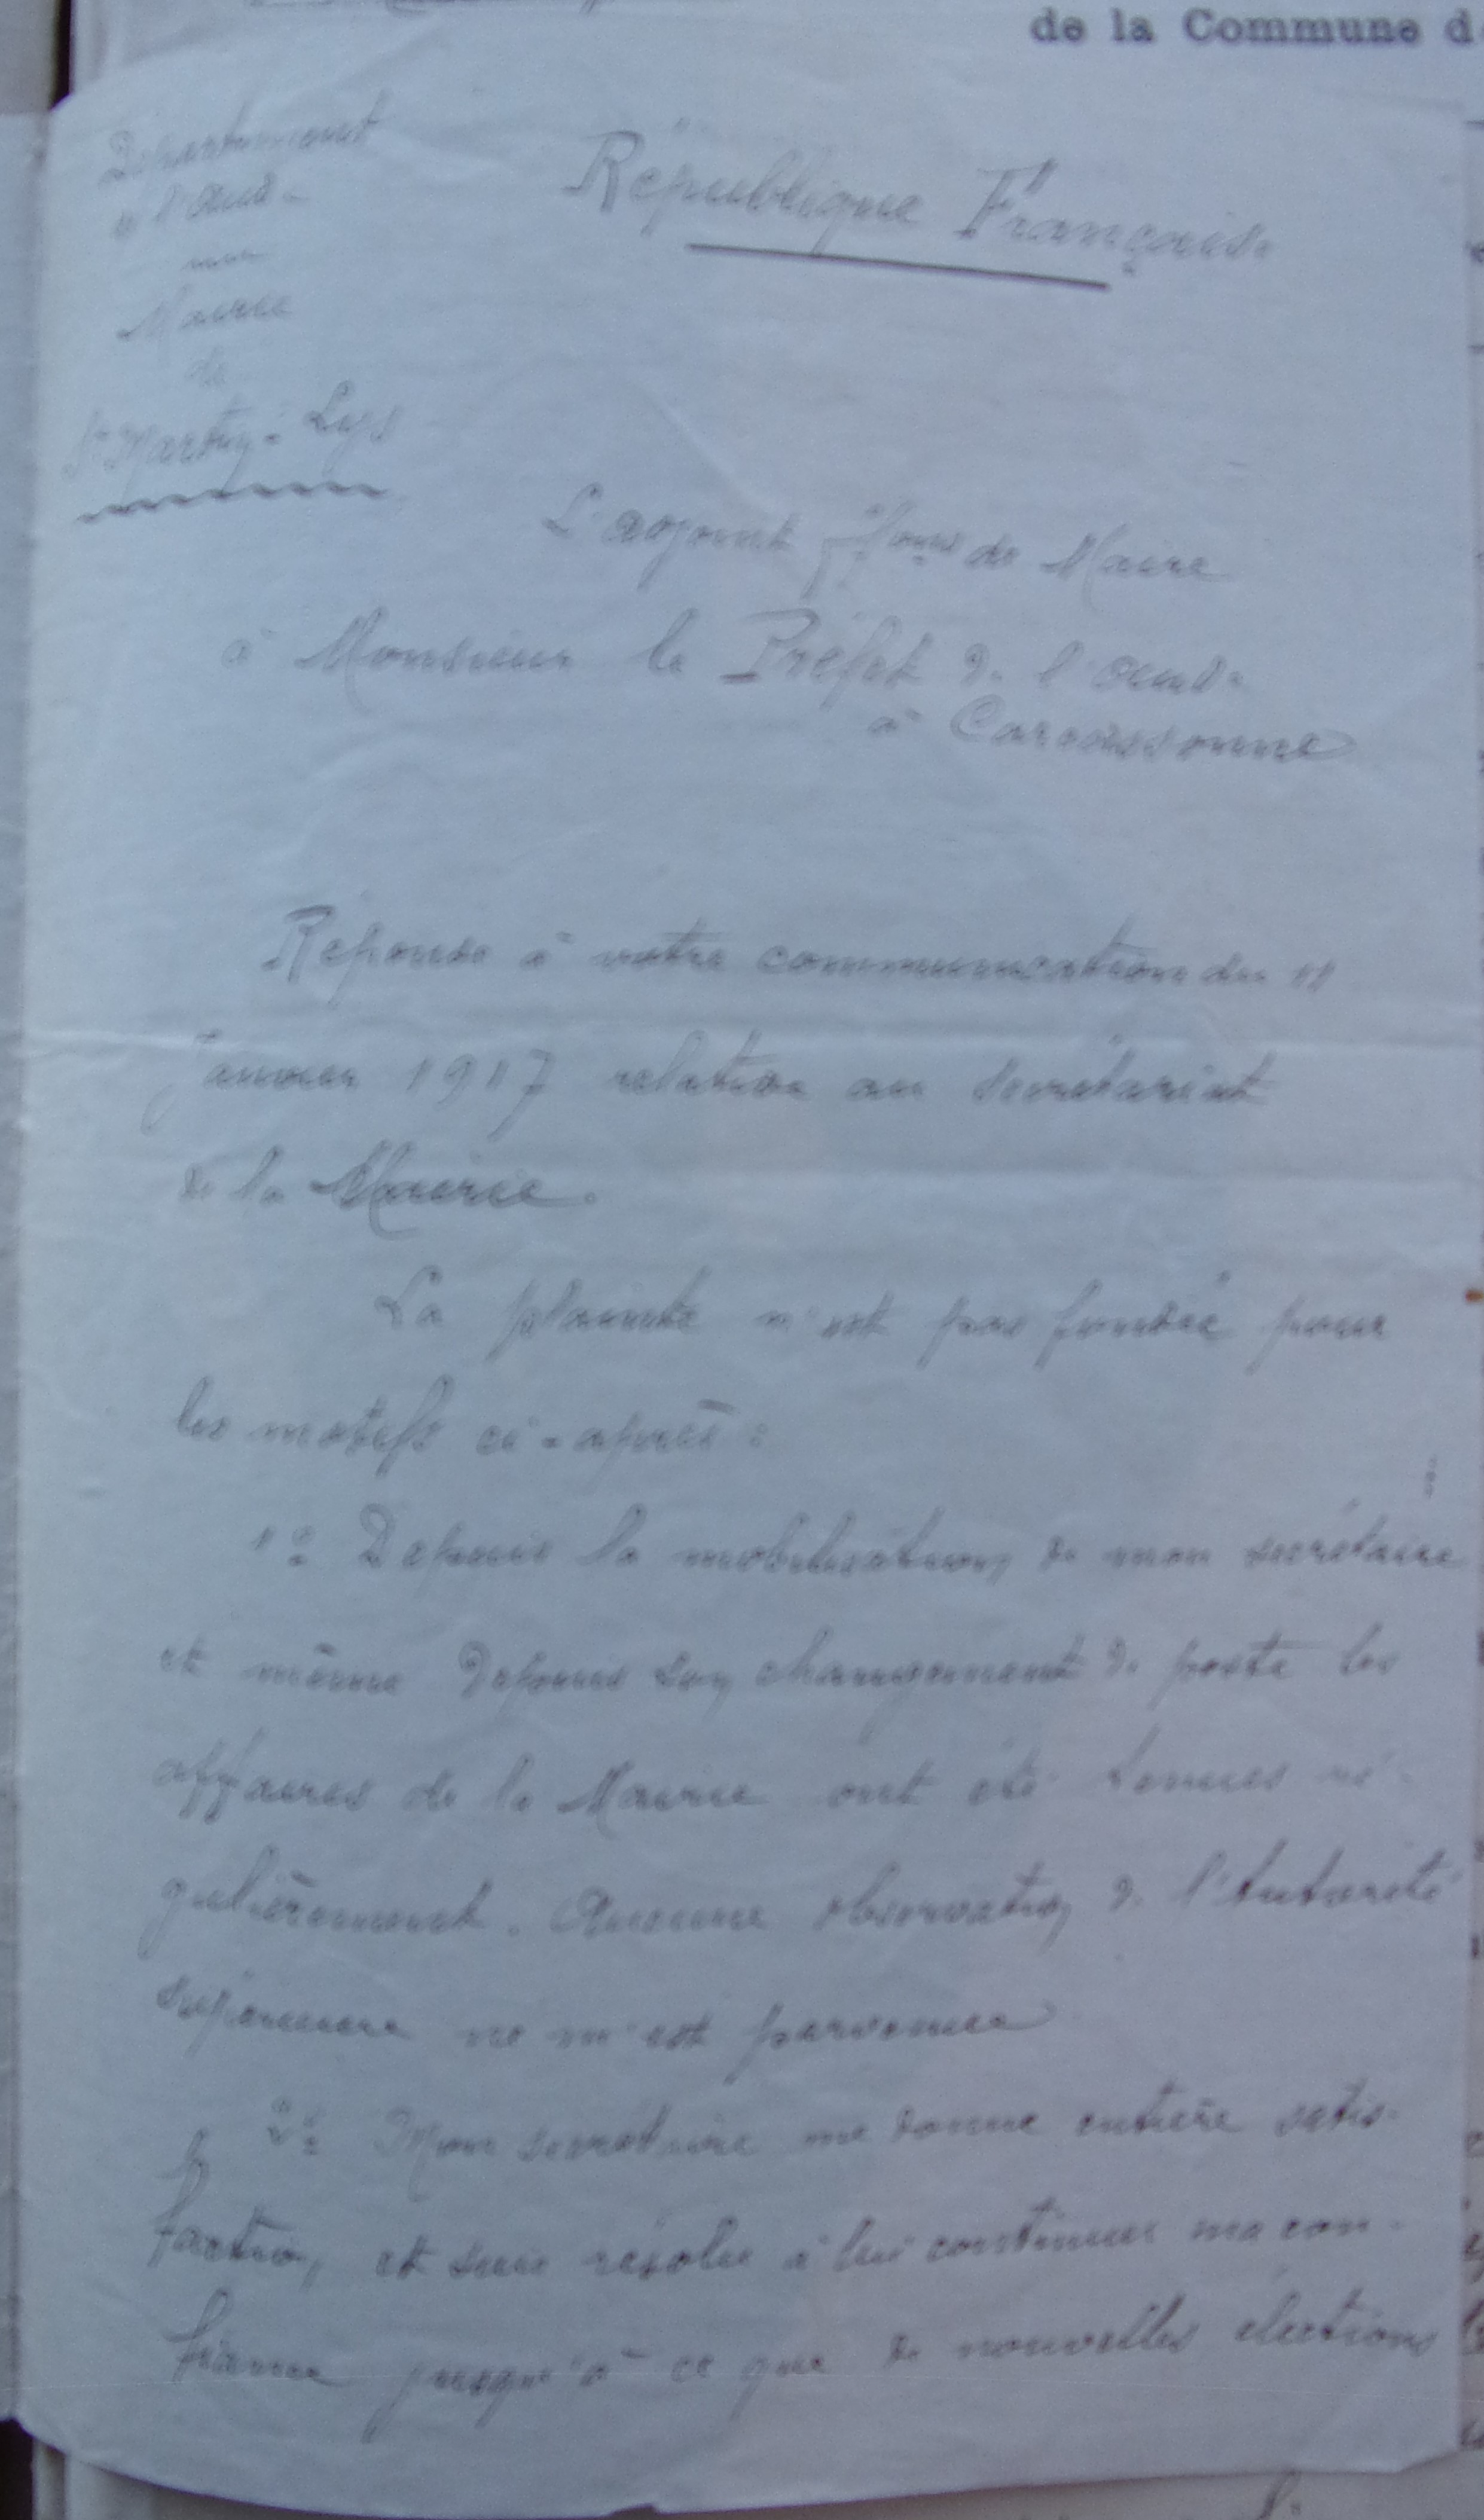 de la Commune d
Département
de l'Aude
Mairie
de
St Martin-Lys
République Française
L'adjoint ff. fons de Maire
à Monsieur le Préfet de l'Aude
à Carcassonne
Réponse à votre communication du 11
Janvier 1917 relative au secrétariat
de la Mairie.
La plainte n'est pas fondée pour
les motifs ci-après :
1º Depuis la mobilisation de mon secrétaire
et même depuis son changement de poste les
affaires de la Mairie ont été tenues ré-
gulièrement. Aucune observation de l'Autorité
supérieure ne m'est parvenue
2º Mon secrétaire me donne entière satis-
faction, et suis résolu à lui continuer ma con-
fiance jusqu'à ce que de nouvelles élections